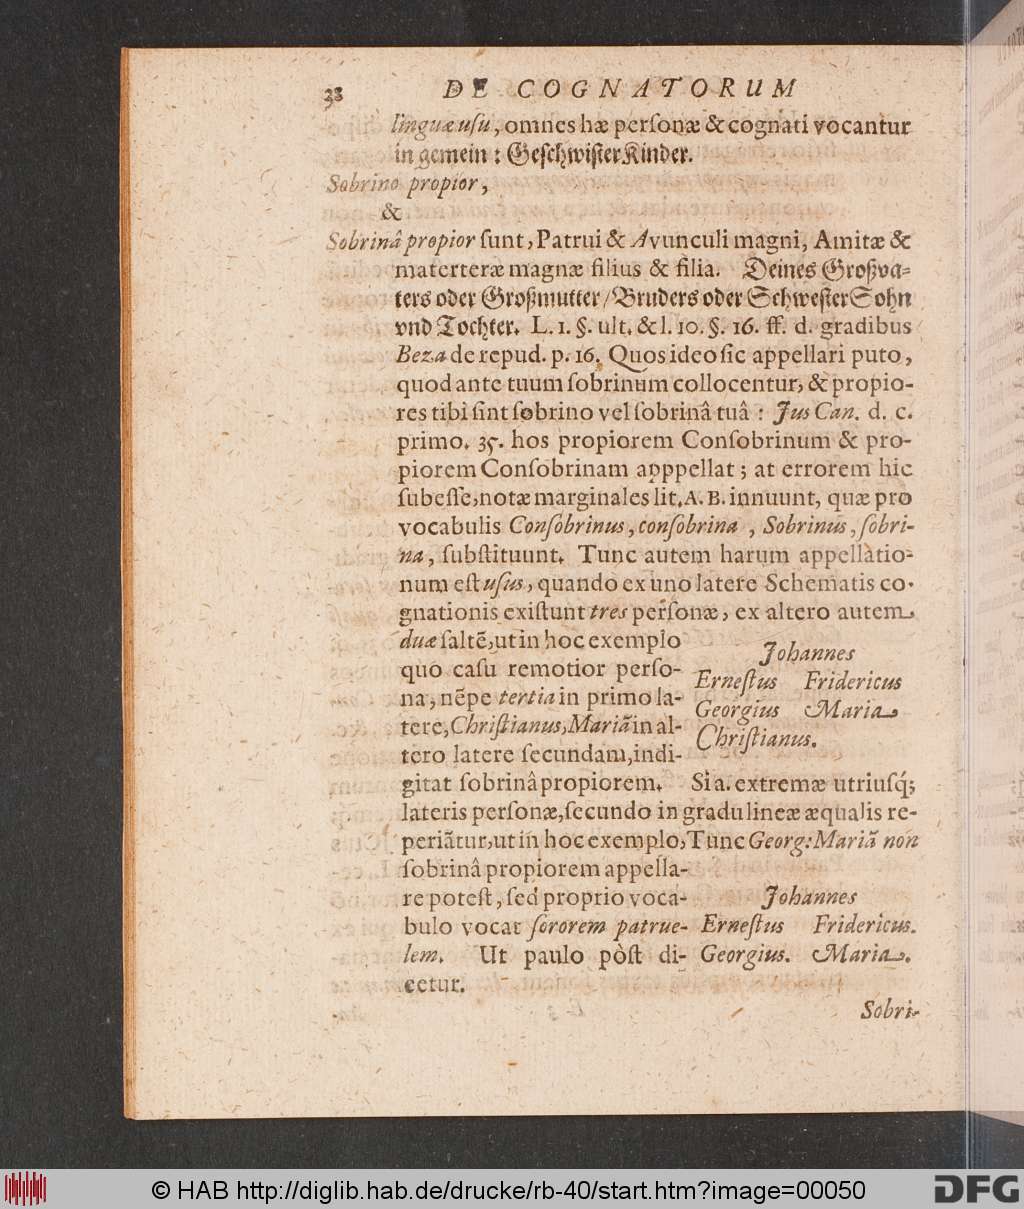 38 DE COGNATORUM
linguæ usu, omnes hæ personæ & cognati vocantur
in gemein : Geschwister Kinder.
Sobrino propior,
&
Sobrinâ propior sunt, Patrui & Avunculi magni, Amitæ &
materteræ magnæ filius & filia. Deines Großva-
ters oder Großmutter/Bruders oder Schwester Sohn
vnd Tochter. L. 1. §. ult. & l. 10. §. 16. ff. d. gradibus
Beza de repud. p. 16. Quos ideo sic appellari puto,
quod ante tuum sobrinum collocentur, & propio-
res tibi sint sobrino vel sobrinâ tuâ : Jus Can. d. c.
primo. 35. hos propiorem Consobrinum & pro-
piorem Consobrinam apppellat ; at errorem hic
subesse, notæ marginales lit. A. B. innuunt, quæ pro
vocabulis Consobrinus, consobrina , Sobrinus, sobri-
na, substituunt. Tunc autem harum appellàtio-
num est usus, quando ex uno latere Schematis co-
gnationis existunt tres personæ, ex altero autem
duæ saltẽ, ut in hoc exemplo
quo casu remotior perso-
na, nẽpe tertia in primo la-
tere, Christianus, Mariã in al-
tero latere secundam, indi-
Johannes
Ernestus Fridericus
Georgius Maria
Christianus.
gitat sobrinâ propiorem. Si a. extremæ utriusq́;
lateris personæ, secundo in gradu lineæ æqualis re-
periãtur, ut in hoc exemplo, Tunc Georg: Mariã non
sobrinâ propiorem appella-
re potest, sed proprio voca-
bulo vocat sororem patrue-
lem. Ut paulo pòst di-
cetur.
Johannes
Ernestus Fridericus.
Georgius. Maria.
Sobri-
© HAB http://diglib.hab.de/drucke/rb-40/start.htm?image=00050
DFG